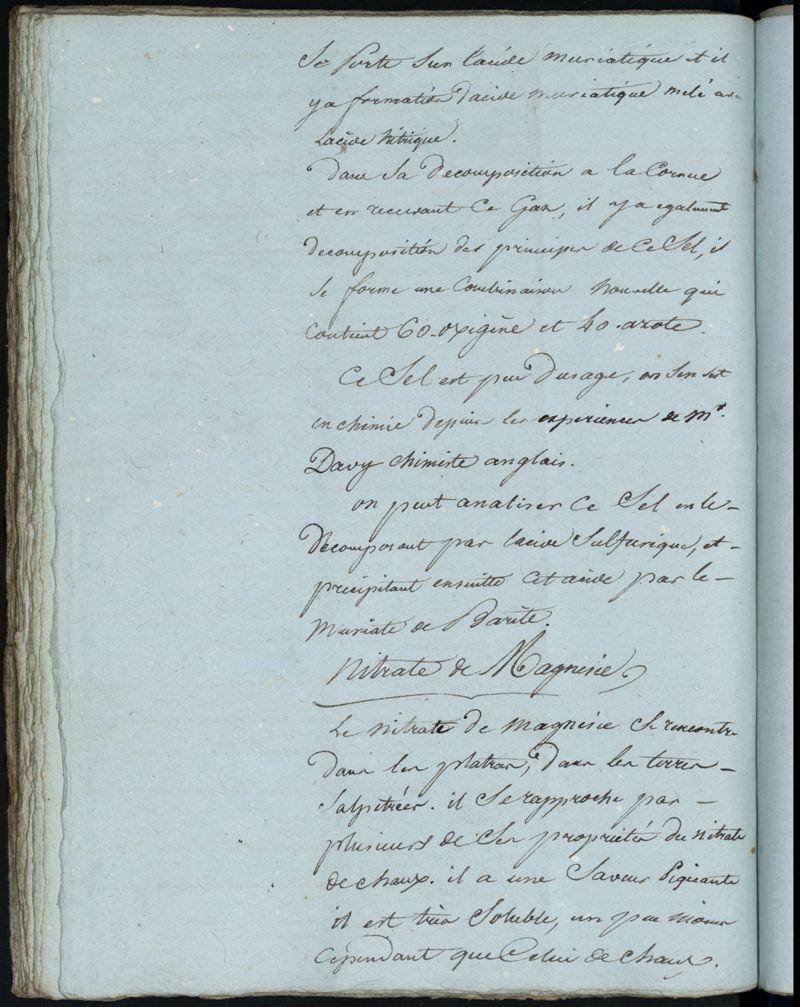 Se porte sur l'acide muriatique et il
y a formation d'acide muriatique mélé avec
Lacide Nitrique.
Dans sa decomposition a la Cornue
et en recevant Ce Gaz, il y a egalement
decomposition des principes de Ce Sel, il
se forme une Combinaison Nouvelle qui
Contient 60. oxigène et 40. azote.
Ce Sel est peu d'usage, on s'en sert
en chimie depuis les experiences de Mr.
Davy chimiste anglais.
on peut analiser Ce Sel en le-
Décomposant par lacide Sulfurique, et-
précipitant ensuitte cet acide par le-
Muriate de Barite.
Nitrate de Magnésie
Le Nitrate de magnésie Se rencontre
dans les platras, dans les terres-
Salpétrées. il Se rapproche par-
plusieurs de Ses propriétés du Nitrate
de chaux. il a une Saveur Piquante
il est très Soluble, un peu moins
Cépendant que Celui de chaux.